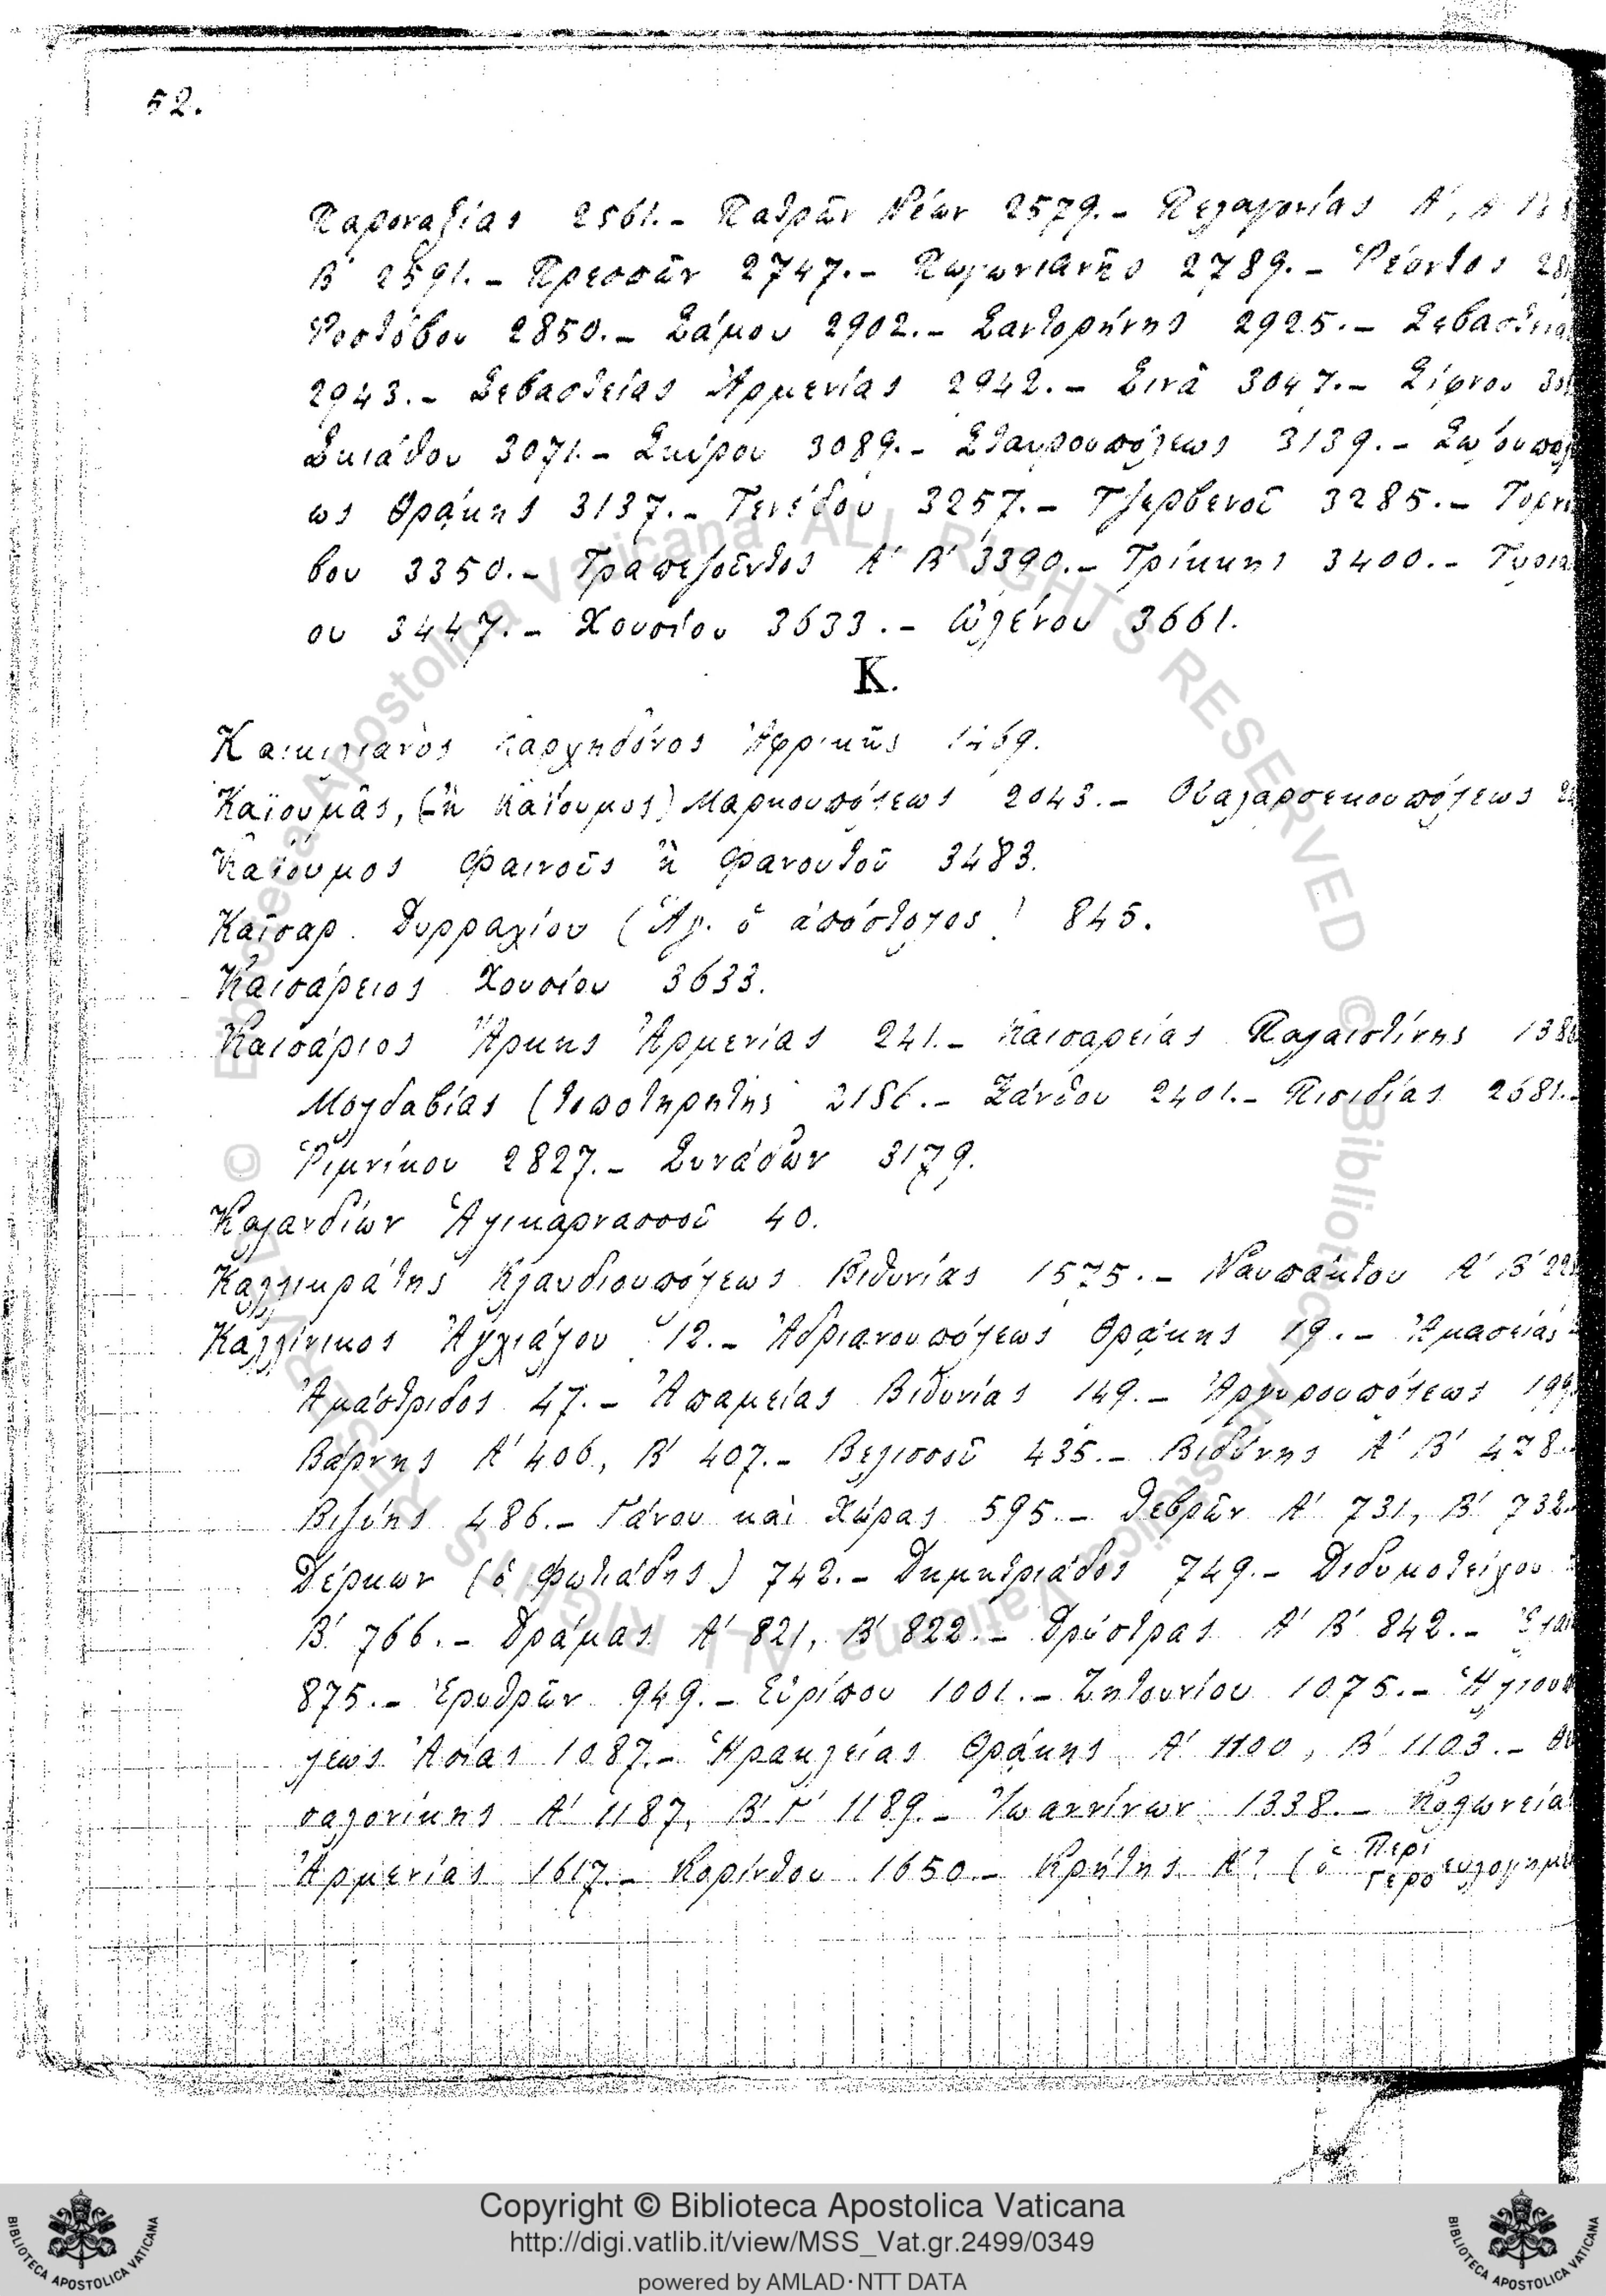 52.
Παροναξίας 2561.- Πατρῶν Νέων 2579.- Πελαγονίας Α΄,
Β΄ 2591.- Πρεσπῶν 2747.- Πωγωνιανῆς 2789.- Ῥέοντος
Ῥοστόβου 2850.- Σάμου 2902.- Σαντορήνης 2925.- Σεβαστεία
2943.- Σεβαστείας Ἀρμενίας 2942.- Σινᾶ 3047.- Σίφνου
Σκιάθου 3071.- Σκύρου 3089.- Σταυρουπόλεως 3139.- Σωζουπόλ
ως Θράκης 3137.- Τενέδου 3257.- Τζερβενοῦ 3285.-
βου 3350.- Τραπεζοῦντος Α΄ Β΄ 3390.- Τρίκκης 3400.-
ου 3447.- Χουσίου 3633.- Ὠλένου 3661.
Κ.
Καικιλιανὸς Καρχηδόνος Ἀφρικῆς
Καϊουμᾶς, (ἢ Καΐουμος) Μαρκουπόλεως 2043.- Οὐαλαρσεκουπόλεως
Καΐουμος Φαινοῦς ἢ Φανουτοῦ 3483.
Καῖσαρ Δυρραχίου (Ἅγ. ὁ ἀπόστολος) 845.
Καισάρειος Χουσίου 3633.
Καισάριος Ἄρκης Ἀρμενίας 241.- Καισαρείας Παλαιστίνης
Μολδαβίας (τοποτηρητὴς 2186.- Ξάνθου 2401.- Πισιδίας 2681.-
Ῥιμνίκου 2827.- Συνάδων 3179.
Καλανδίων Ἁλικαρνασσοῦ 40.
Καλλικράτης Κλαυδιουπόλεως Βιθυνίας 1575.- Ναυπάκτου Α΄ Β΄
Καλλίνικος Ἀγχιάλου 12.- Ἀδριανουπόλεως Θράκης 19.- Ἀμασείας
Ἀμάστριδος 47.- Ἀπαμείας Βιθυνίας 149.- Ἀργυρουπόλεως
Βάρνης Α΄ 406, Β΄ 407.- Βελισσοῦ 435.- Βιδύνης Α΄ Β΄ 478.-
Βιζύης 486.- Γάνου καὶ Χώρας 595.- Δεβρῶν Α΄ 731, Β΄ 732.-
Δέρκων (ὁ Φωτιάδης) 742.- Δημητριάδος 749.- Διδυμοτείχου
Β΄ 766.- Δράμας Α΄ 821, Β΄ 822.- Δρύστρας Α΄ Β΄ 842.-
875.- Ἐρυθρῶν 949.- Εὐρίπου 1001.- Ζητουνίου 1075.- Ἡλιουπ
λεως Ἀσίας 1087.- Ἡρακλείας Θράκης Α΄ 1100, Β΄ 1103.-
σαλονίκης Α΄ 1187, Β΄ Γ΄ 1189.- Ἰωαννίνων 1338.- Κολωνεία
Ἀρμενίας 1617.- Κορίνθου 1650.- Κρήτης Α΄! (ὁ Περι
Γερο ευλογημέ
© Biblioteca Apostolica Vaticana ALL RIGHTS RESERVED
Copyright © Biblioteca Apostolica Vaticana
http://digi.vatlib.it/view/MSS_Vat.gr.2499/0349
powered by AMLAD·NTT DATA
BIBLIOTECA APOSTOLICA VATICANA
BIBLIOTECA APOSTOLICA VATICANA